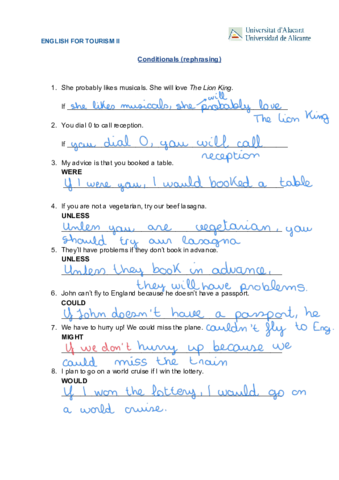 Universitat d'Alacant
Universidad de Alicante
ENGLISH FOR TOURISM II
Conditionals (rephrasing)
1. She probably likes musicals. She will love The Lion King.
will
If she likes musicals, she probably love
The Lion King
2. You dial 0 to call reception.
If you dial 0, you will call
reception
3. My advice is that you booked a table.
WERE
If I were you, I would booked a table
4. If you are not a vegetarian, try our beef lasagna.
UNLESS
Unless you, are vegetarian, you
should try our lasagna
5. They'll have problems if they don't book in advance.
UNLESS
Unless they book in advance,
they will have problems.
6. John can't fly to England because he doesn't have a passport.
COULD
If John doesn't have a passport, he
7. We have to hurry up! We could miss the plane. couldn't fly to Eng.
MIGHT
If we don't hurry up because we
could miss the train
8. I plan to go on a world cruise if I win the lottery.
WOULD
If I won the lottery, I would go on
a world cruise.